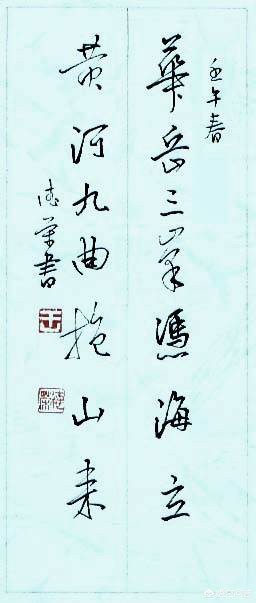 壬午春
華岳三峯憑海立
黄河九曲抱山来
德榮書
王